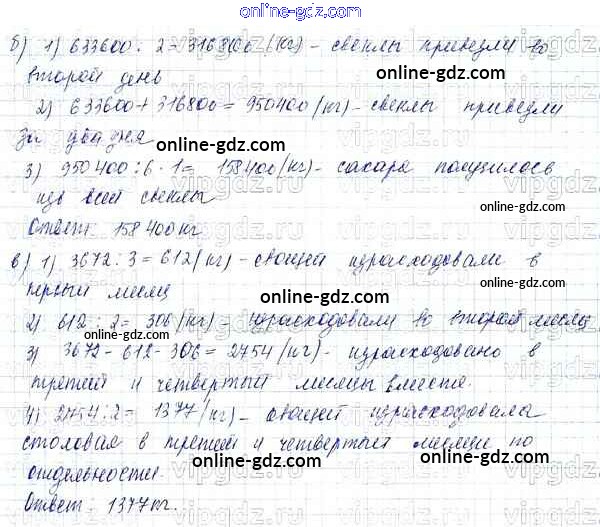 online-gdz.com
б) 1) 633600 : 2 = 316800 (кг) - свеклы привезли во
второй день
online-gdz.com
2) 633600 + 316800 = 950400 (кг) - свеклы привезли
за два дня
online-gdz.com
3) 950400 : 6 · 1 = 158400 (кг) - сахара получилось
из всей свеклы
online-gdz.com
Ответ: 158400 кг
online-gdz.com
в) 1) 3672 : 3 = 612 (кг) - овощей израсходовали в
первый месяц
online-gdz.com
2) 612 : 2 = 306 (кг) - израсходовали во второй месяц
online-gdz.com
3) 3672 - 612 - 306 = 2754 (кг) - израсходовано в
третий и четвертый месяцы вместе.
online-gdz.com
4) 2754 : 2 = 1377 (кг) - овощей израсходовала
столовая в третий и четвертый месяцы по
отдельности.
online-gdz.com
Ответ: 1377 кг.
online-gdz.com